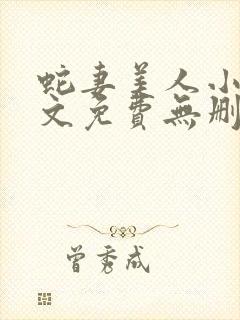 蛇妻美人小
文免費無刪
曾秀成